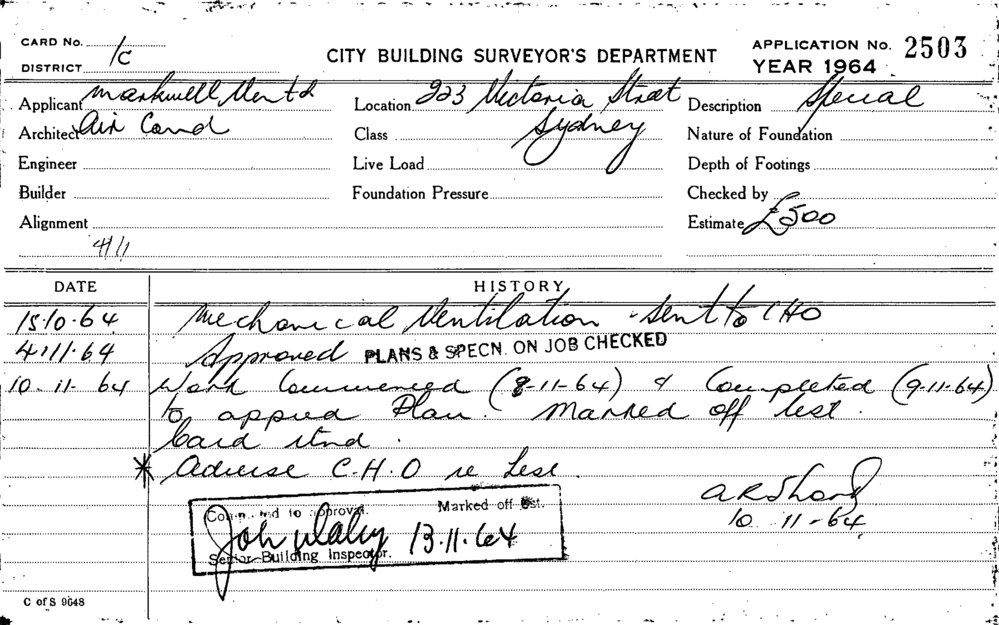 CARD No.
DISTRICT 1c
CITY BUILDING SURVEYOR'S DEPARTMENT
APPLICATION No. 2503
YEAR 1964
Applicant Markwell Vent &
Location 223 Victoria Street
Description Special
Architect Air Cond
Class Sydney
Nature of Foundation
Engineer
Live Load
Depth of Footings
Builder
Foundation Pressure
Checked by
Alignment
Estimate £500
4/11
DATE HISTORY
15·10·64 Mechanical Ventilation - Sent to CHO
4·11·64 Approved PLANS & SPECN. ON JOB CHECKED
10-11-64 Work Commenced (8-11-64) & Completed (9-11-64)
to appved Plan. Marked off test.
Card
* C.H.O re Test
10-11-64
Marked off
13.11.64
Senior Building Inspector.
C of S 9648